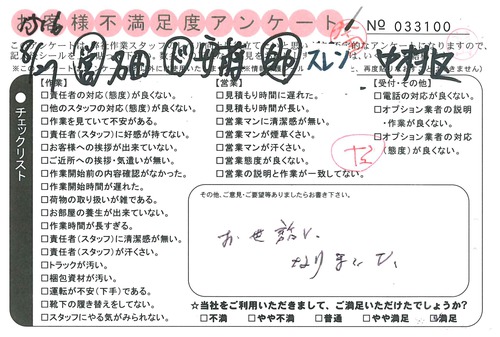 お客様不満足度アンケート
№ 033100
【作業】
□責任者の対応(態度)が良くない。
□他のスタッフの対応(態度)が良くない。
□作業を見ていて不安がある。
□責任者(スタッフ)に好感が持てない。
□お客様への挨拶が出来ていない。
□ご近所への挨拶・気遣いが無い。
□作業開始前の内容確認がなかった。
□作業開始時間が遅れた。
□荷物の取り扱いが雑である。
□お部屋の養生が出来ていない。
□作業時間が長すぎる。
□責任者(スタッフ)に清潔感が無い。
□責任者(スタッフ)が汗くさい。
□トラックが汚い。
□梱包資材が汚い。
□運転が不安(下手)である。
□靴下の履き替えをしてない。
□スタッフにやる気がみられない。
【営業】
□見積もり時間に遅れた。
□見積もり時間が長い。
□営業マンに清潔感が無い。
□営業マンが煙草くさい。
□営業マンが汗くさい。
□営業態度が良くない。
□営業の説明と作業が一致してない。
【受付・その他】
□電話の対応が良くない。
□オプション業者の説明
・作業が良くない。
□オプション業者の対応
(態度)が良くない。
●チェックリスト
その他、ご意見・ご要望等ありましたらお書き下さい。
お世話に
なりました。
☆当社をご利用いただきまして、ご満足いただけたでしょうか?
□不満 □やや不満 □普通 □やや満足 ☑満足